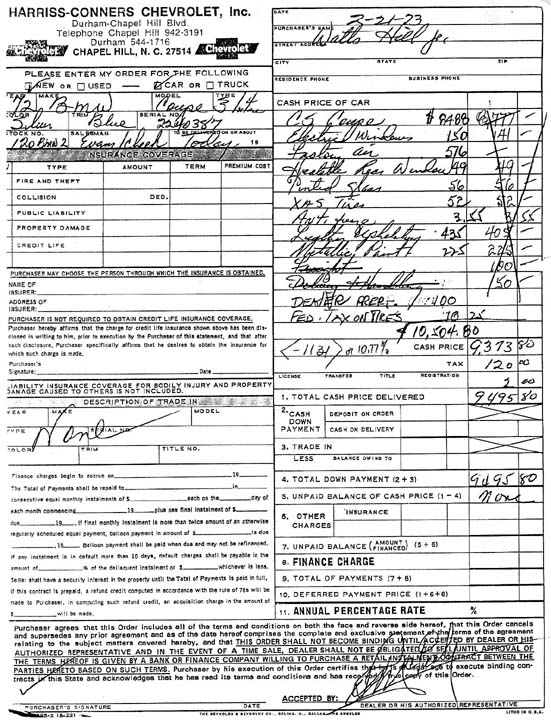 HARRISS-CONNERS CHEVROLET, Inc.
Durham-Chapel Hill Blvd.
Telephone Chapel Hill 942-3191
Durham 544-1716
Chevrolet CHAPEL HILL, N. C. 27514 Chevrolet
DATE 2-21-73
PURCHASER'S NAME Watts Hill Jr.
STREET ADDRESS
CITY STATE ZIP
RESIDENCE PHONE BUSINESS PHONE
PLEASE ENTER MY ORDER FOR THE FOLLOWING
NEW OR USED CAR OR TRUCK
YEAR MAKE MODEL TYPE
72 BMW Coupe
COLOR TRIM SERIAL NO.
Silver Blue
STOCK NO. SALESMAN TO BE DELIVERED ON OR ABOUT
Today 19
INSURANCE COVERAGE
TYPE AMOUNT TERM PREMIUM COST
FIRE AND THEFT
COLLISION DED.
PUBLIC LIABILITY
PROPERTY DAMAGE
CREDIT LIFE
PURCHASER MAY CHOOSE THE PERSON THROUGH WHICH THE INSURANCE IS OBTAINED.
NAME OF
INSURER:
ADDRESS OF
INSURER:
PURCHASER IS NOT REQUIRED TO OBTAIN CREDIT LIFE INSURANCE COVERAGE.
Purchaser hereby affirms that the charge for credit life insurance shown above has been dis-
closed in writing to him, prior to execution by the Purchaser of this statement, and that after
such disclosure, Purchaser specifically affirms that he desires to obtain the insurance for
which such charge is made.
Purchaser's
Signature: Date
LIABILITY INSURANCE COVERAGE FOR BODILY INJURY AND PROPERTY
DAMAGE CAUSED TO OTHERS IS NOT INCLUDED.
DESCRIPTION OF TRADE IN
YEAR MAKE MODEL
None
TYPE SERIAL NO.
COLOR TRIM TITLE NO.
Finance charges begin to accrue on 19
The Total of Payments shall be repaid to in
consecutive equal monthly instalments of $ each on the day of
each month commencing 19 plus one final instalment of $
due 19 If final monthly instalment is more than twice amount of an otherwise
regularly scheduled equal payment, balloon payment in amount of $ is due
19 Balloon payment shall be paid when due and may not be refinanced.
If any instalment is in default more than 10 days, default charges shall be payable in the
amount of % of the delinquent instalment or $ whichever is less.
Seller shall have a security interest in the property until the Total of Payments is paid in full,
if this contract is prepaid, a refund credit computed in accordance with the rule of 78s will be
made to Purchaser, in computing such refund credit, an acquisition charge in the amount of
$ will be made.
CASH PRICE OF CAR
CS Coupe $ 8488 777
Electric Windows 150 141
Factory Air 576
Heatable Rear Window 49 49
Tinted Glass 56 56
XAS Tires 52 52
Anti freeze 3.55 3 55
Leather Upholstery 435 405
Metallic Paint 225 225
Freight 100
Delivery & Handling 150
DEALER PREP. 100
FED. TAX ON TIRES 10 25
$ 10,504.80
<-1131> or 10.77% CASH PRICE 9,373 80
TAX 120 00
LICENSE TRANSFER TITLE REGISTRATION 2 00
1. TOTAL CASH PRICE DELIVERED 9495 80
2. CASH DOWN PAYMENT DEPOSIT ON ORDER
CASH ON DELIVERY
3. TRADE IN
LESS BALANCE OWING TO
4. TOTAL DOWN PAYMENT (2 + 3) 9495 80
5. UNPAID BALANCE OF CASH PRICE (1 – 4) None
6. OTHER CHARGES INSURANCE
7. UNPAID BALANCE (AMOUNT FINANCED) (5 + 6)
8. FINANCE CHARGE
9. TOTAL OF PAYMENTS (7 + 8)
10. DEFERRED PAYMENT PRICE (1+6+8)
11. ANNUAL PERCENTAGE RATE %
Purchaser agrees that this Order includes all of the terms and conditions on both the face and reverse side hereof, that this Order cancels
and supersedes any prior agreement and as of the date hereof comprises the complete and exclusive statement of the terms of the agreement
relating to the subject matters covered hereby, and that THIS ORDER SHALL NOT BECOME BINDING UNTIL ACCEPTED BY DEALER OR HIS
AUTHORIZED REPRESENTATIVE AND IN THE EVENT OF A TIME SALE, DEALER SHALL NOT BE OBLIGATED TO SELL UNTIL APPROVAL OF
THE TERMS HEREOF IS GIVEN BY A BANK OR FINANCE COMPANY WILLING TO PURCHASE A RETAIL INSTALMENT CONTRACT BETWEEN THE
PARTIES HERETO BASED ON SUCH TERMS. Purchaser by his execution of this Order certifies that he is of legal age to execute binding con-
tracts in this State and acknowledges that he has read its terms and conditions and has received a true copy of this Order.
ACCEPTED BY:
PURCHASER'S SIGNATURE DATE DEALER OR HIS AUTHORIZED REPRESENTATIVE
THE REYNOLDS & REYNOLDS CO., CELINA, O., DALLAS, LOS ANGELES LITHO IN U.S.A.